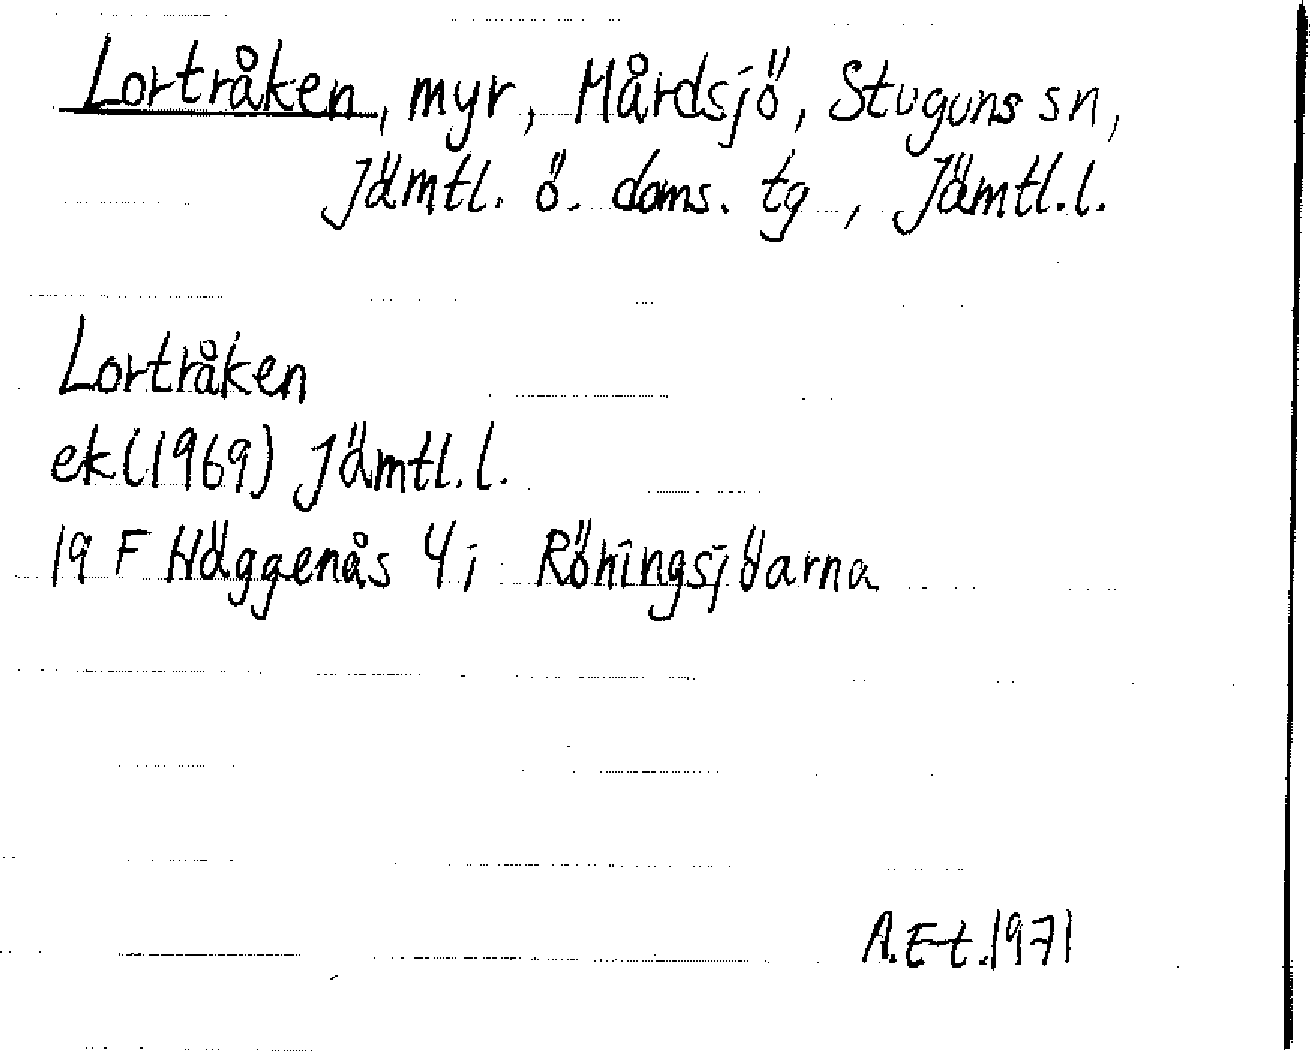 Lortråken, myr, Mårdsjö, Stuguns sn,
Jämtl. ö. doms. tg, Jämtl.l.
Lortråken
ek (1969) Jämtl.l.
19 F Häggenås 4 i Röningsjöarna
A.E-t.1971